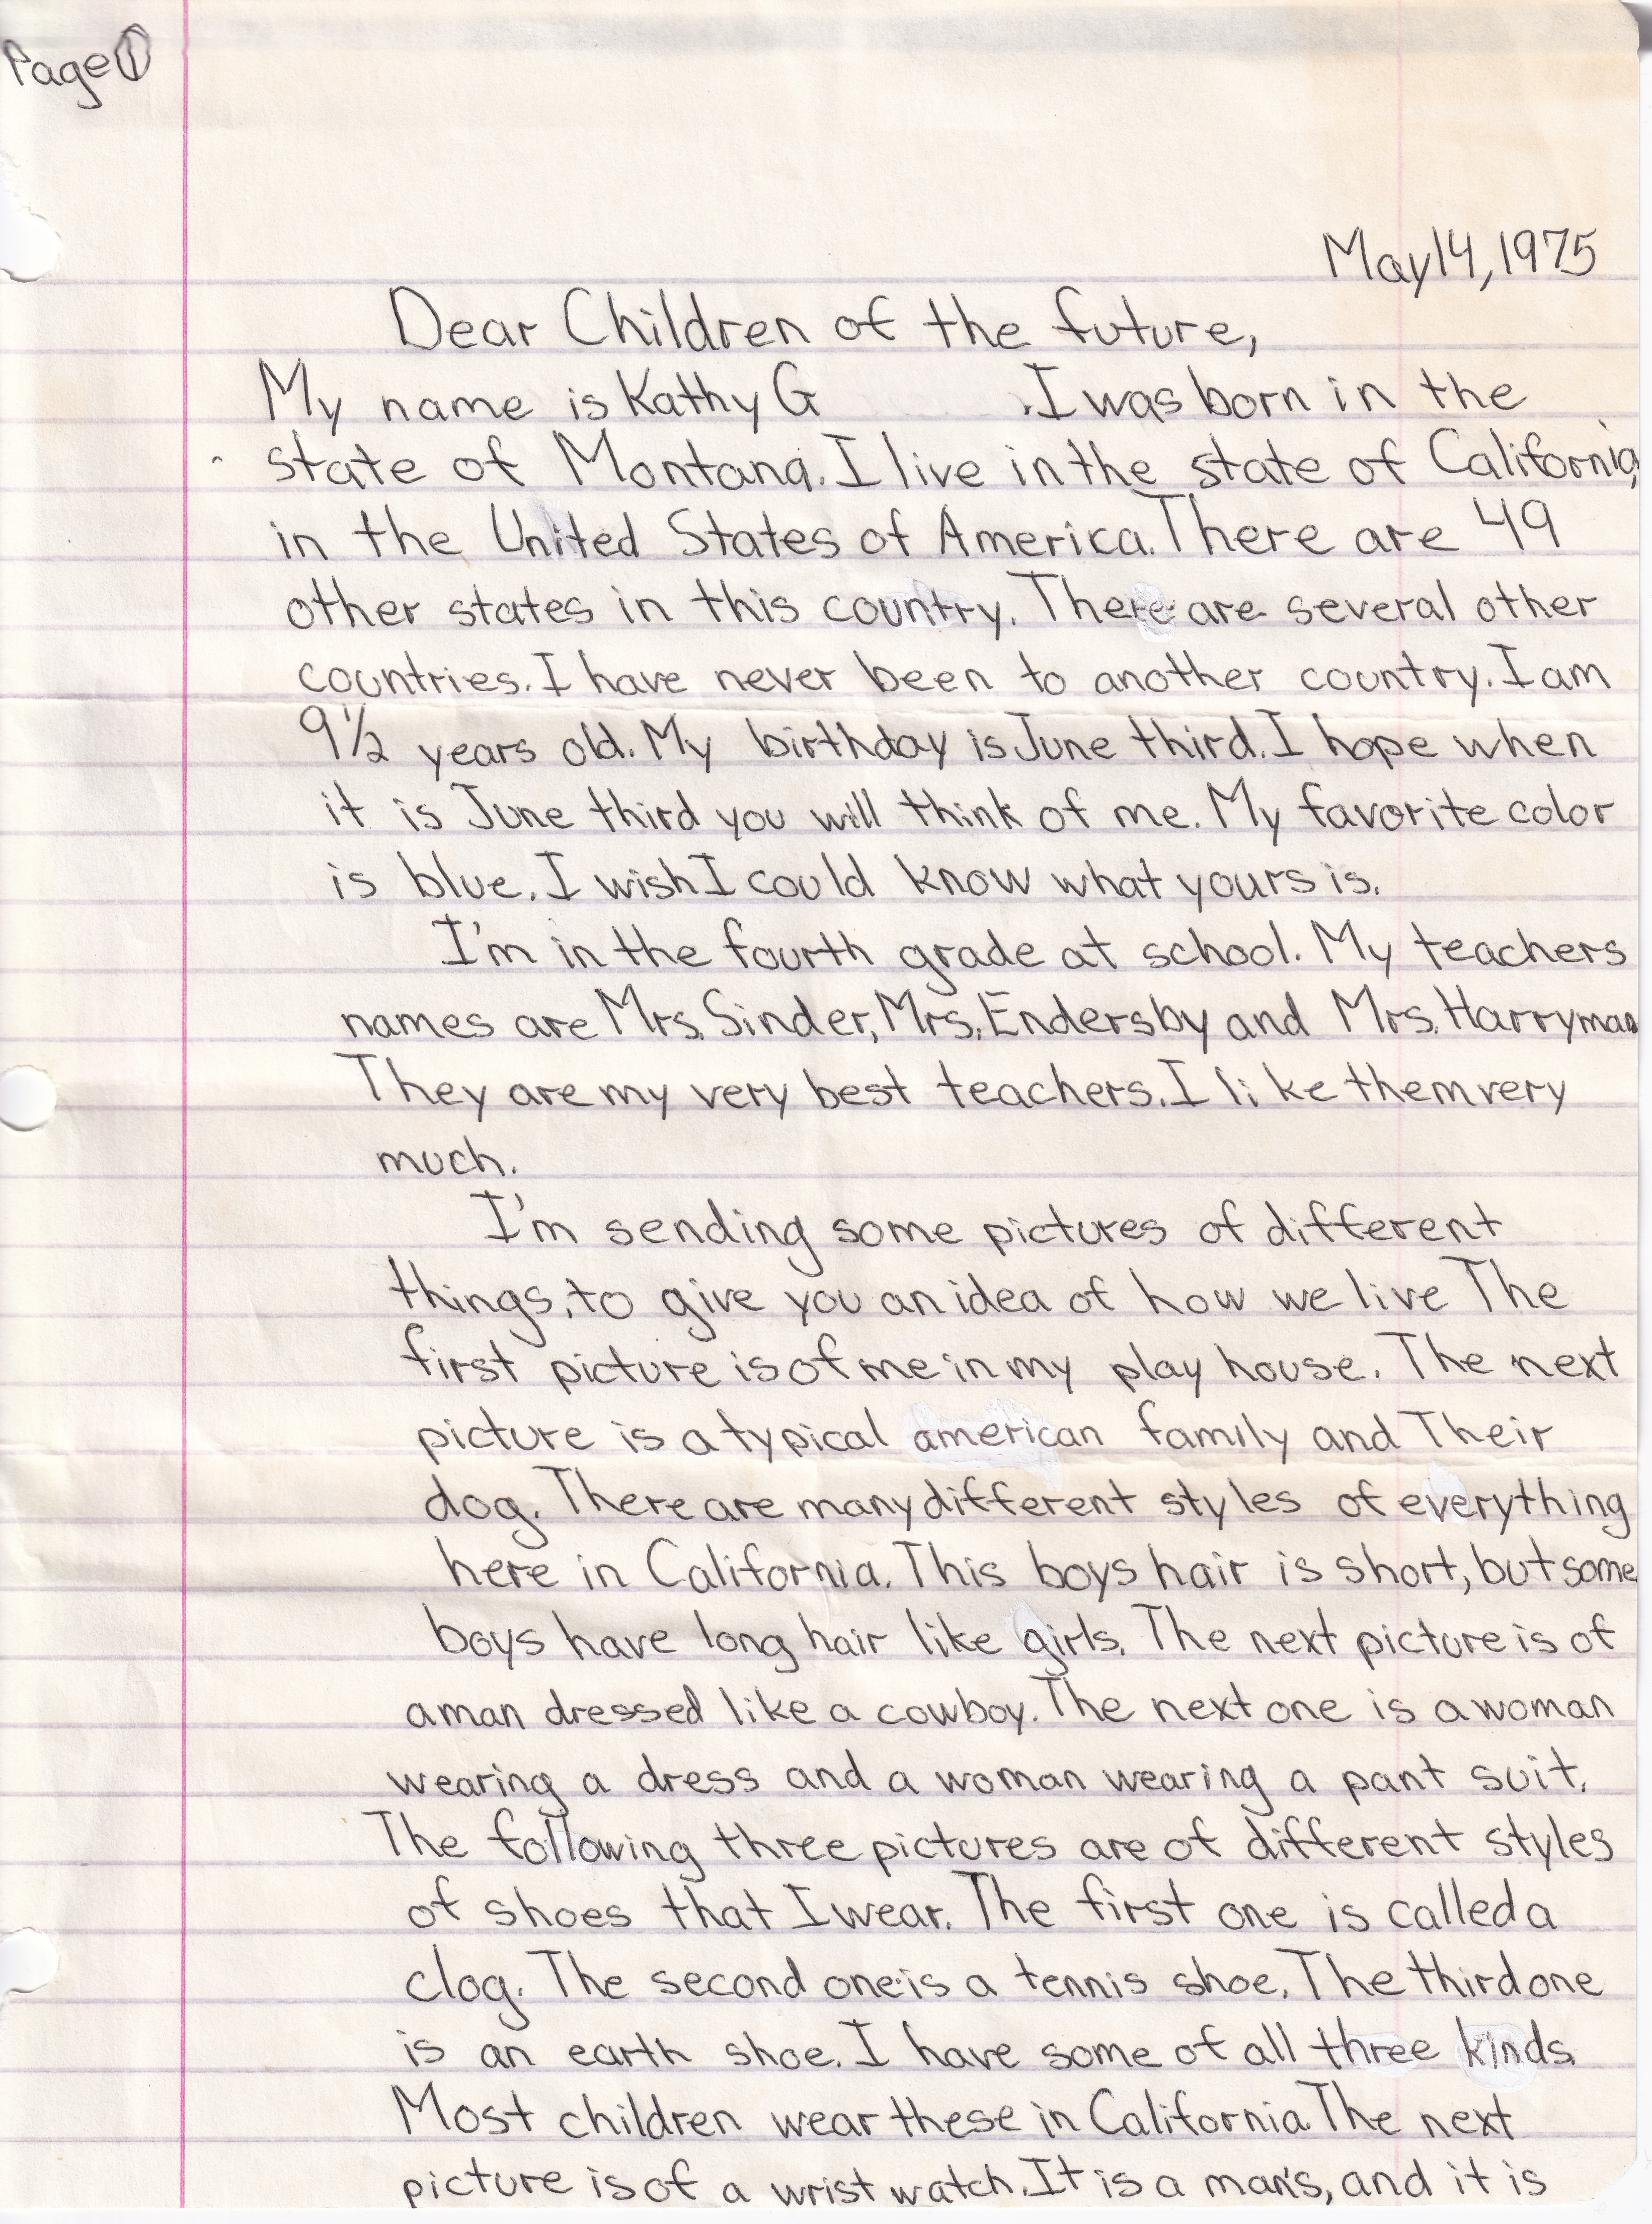 Page 1
May 14, 1975
Dear Children of the future,
My name is Kathy G . I was born in the
state of Montana. I live in the state of California,
in the United States of America. There are 49
other states in this country. There are several other
countries. I have never been to another country. I am
9½ years old. My birthday is June third. I hope when
it is June third you will think of me. My favorite color
is blue. I wish I could know what yours is.
I'm in the fourth grade at school. My teachers
names are Mrs. Sinder, Mrs. Endersby and Mrs. Harryman
They are my very best teachers. I like them very
much.
I'm sending some pictures of different
things, to give you an idea of how we live The
first picture is of me in my play house. The next
picture is a typical american family and Their
dog. There are many different styles of everything
here in California. This boys hair is short, but some
boys have long hair like girls. The next picture is of
a man dressed like a cowboy. The next one is a woman
wearing a dress and a woman wearing a pant suit.
The following three pictures are of different styles
of shoes that I wear. The first one is called a
clog. The second one is a tennis shoe. The third one
is an earth shoe. I have some of all three kinds.
Most children wear these in California The next
picture is of a wrist watch. It is a man's, and it is